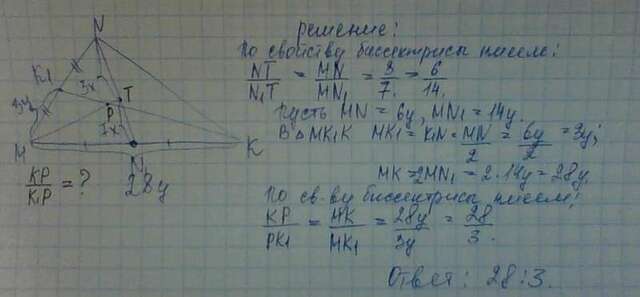 N
K1
3x
3y
T
P
7x
M
N1
K
KP/K1P = ?
28y
решение:
По свойству биссектрисы имеем:
NT/N1T = MN/MN1 = 3/7 = 6/14.
Пусть MN = 6y, MN1 = 14y.
В △ MK1K MK1 = K1N = MN/2 = 6y/2 = 3y;
MK = 2MN1 = 2·14y = 28y
По св-ву биссектрисы имеем:
KP/PK1 = MK/MK1 = 28y/3y = 28/3.
Ответ: 28:3.